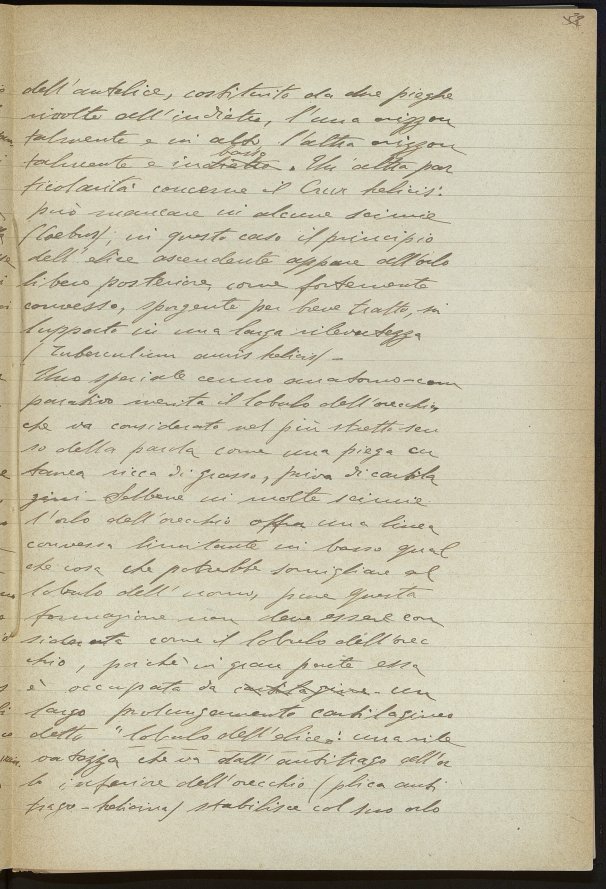 dell'antelice, costituito da due pieghe
rivolte all'indietro, l'una orizzon
talmente e in alto l'altra orizzon
talmente e in basso. Un'altra par
ticolarità concerne il Crux helicis:
può mancare in alcune scimmie
(Coebus); in questo caso il principio
dell'elice ascendente appare all'orlo
libero posteriore, come fortemente
convesso, sporgente per breve tratto, svi
luppato in una larga rilevatezza
(Tuberculum auris helicis) –
Uno speciale cenno anatomo-com
parativo merita il lobulo dell'orecchio
che va considerato nel più stretto sen
so della parola come una piega cu
tanea ricca di grasso, priva di cartila
gini. Sebbene in molte scimmie
l'orlo dell'orecchio offra una linea
convessa limitante in basso qual
che cosa che potrebbe somigliare al
lobulo dell'uomo, pure questa
formazione non deve essere con
siderata come il lobulo dell'orec
chio, poichè in gran parte essa
è occupata da cartilagine un
largo prolungamento cartilagineo
detto "lobulo dell'elice": una rile
vatezza che va dall'antitrago all'or
lo inferiore dell'orecchio (plica anti
trago-helicina) stabilisce col suo orlo